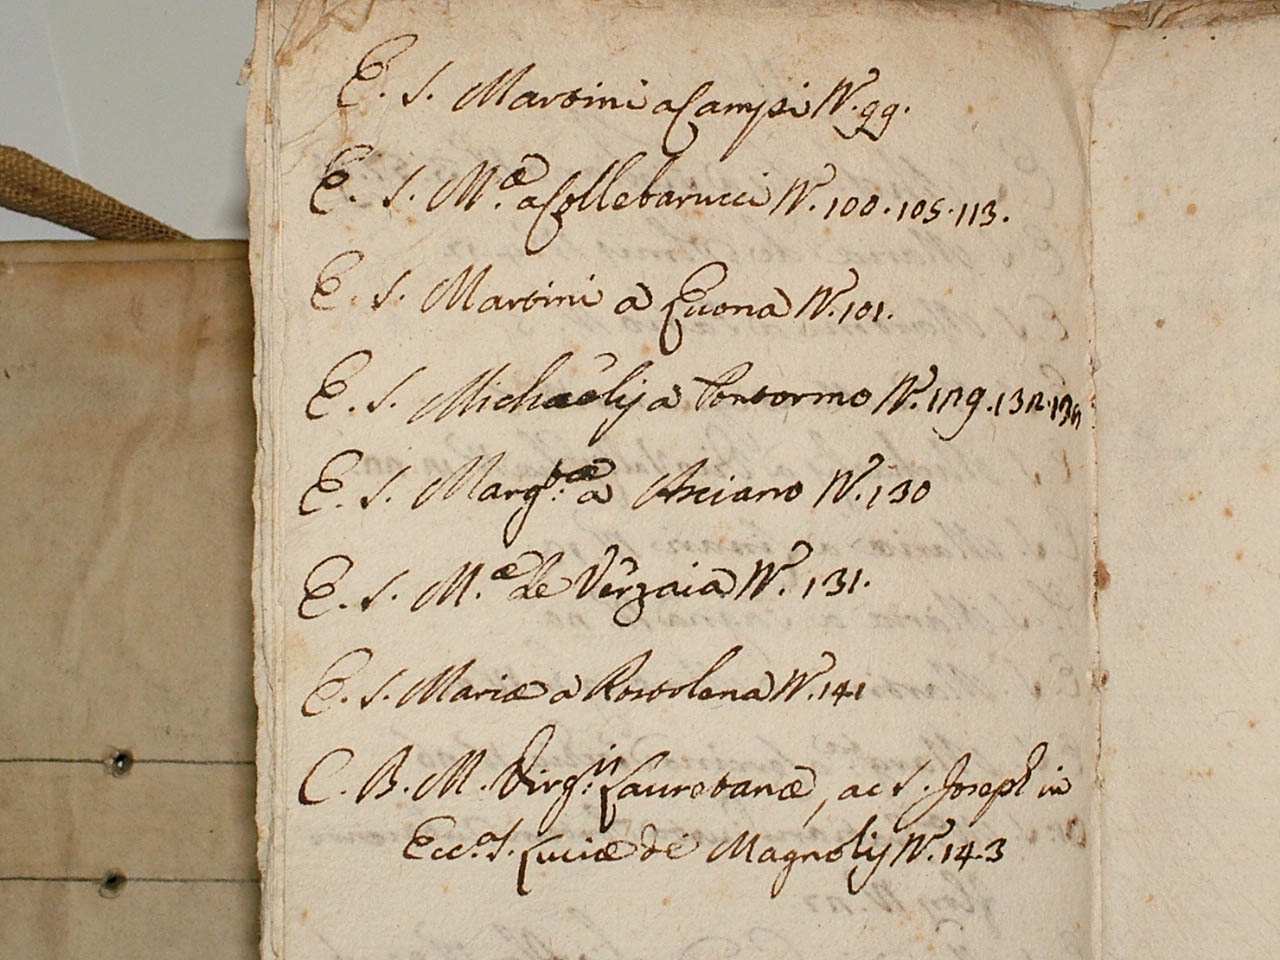 E. S. Martini a Campi N. 99.
E. S. M.æ a Collebarucci N. 100. 105. 113.
E. S. Martini a Lucona N. 101.
E. S. Michaelij a Pontormo N. 129. 132.
E. S. Marg.tæ a Asciano N. 130
E. S. M.æ de Verzaia N. 131.
E. S. Mariæ a Rostolena N. 141
C. B. M. Virg.is Lauretanæ, ac S. Joseph in
Ecc.a S. Luciæ de Magnolij N. 143